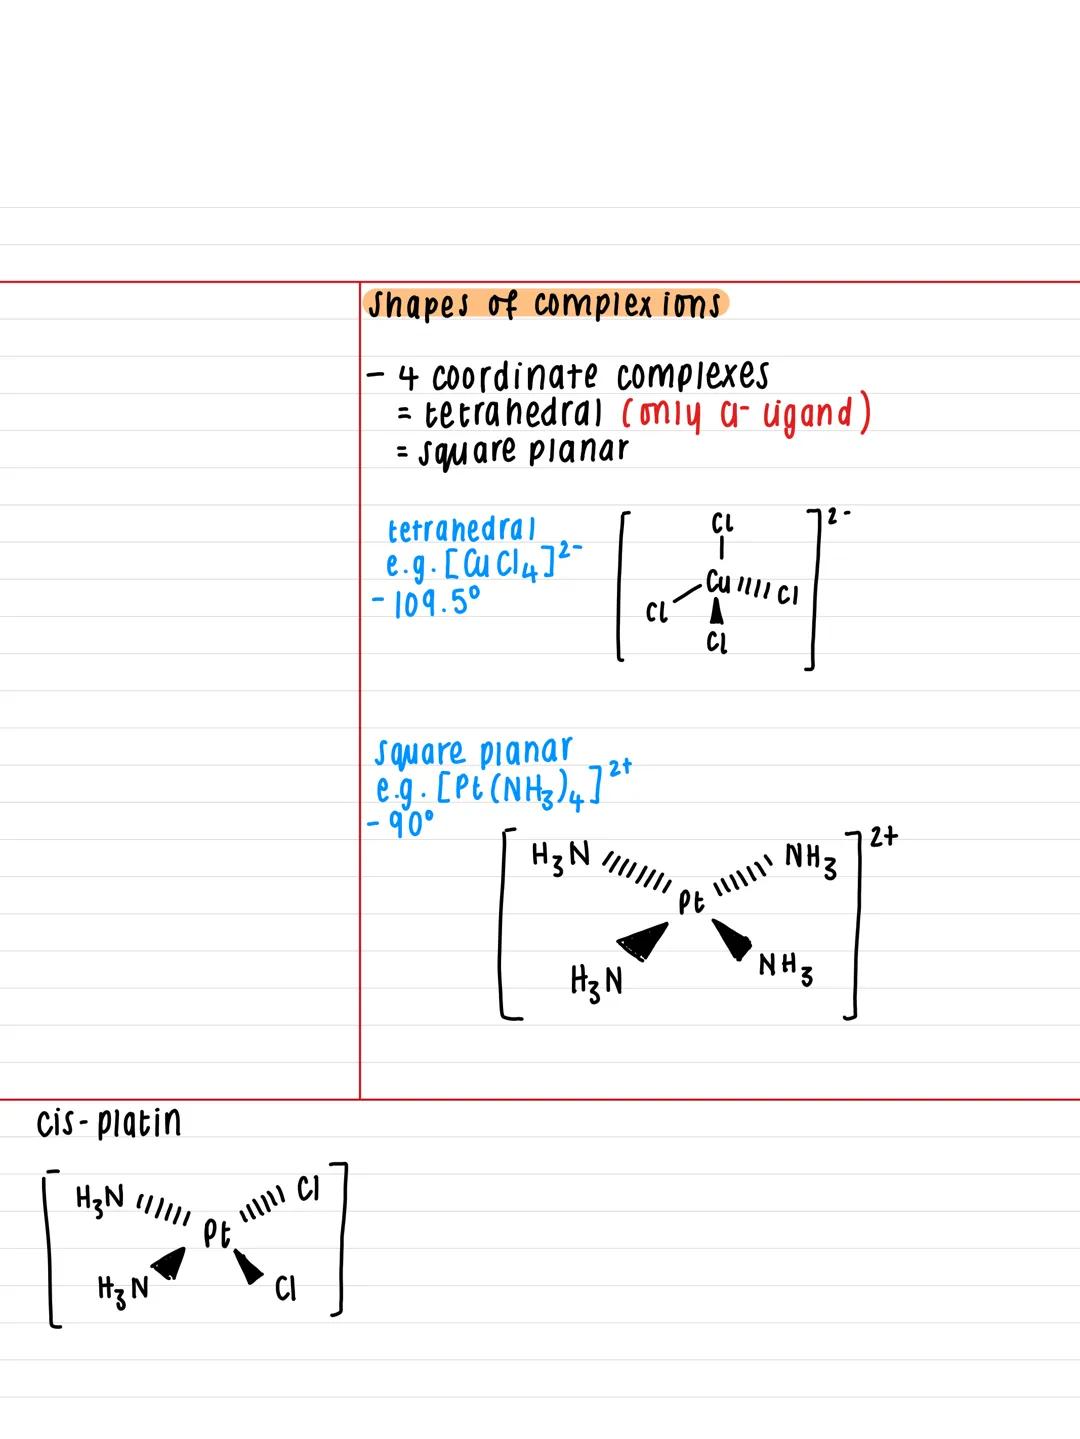 shapes of complex ions
- 4 coordinate complexes
= tetrahedral (only Cl- ligand)
= square planar
tetrahedral
e.g. [CuCl4]2-
- 109.5°
[ Cl ]2-
Cu Cl
Cl
Cl
square planar
e.g. [Pt(NH3)4]2+
- 90°
[ ]2+
H3N NH3
Pt
H3N NH3
cis-platin
[ H3N Cl ]
Pt
H3N Cl